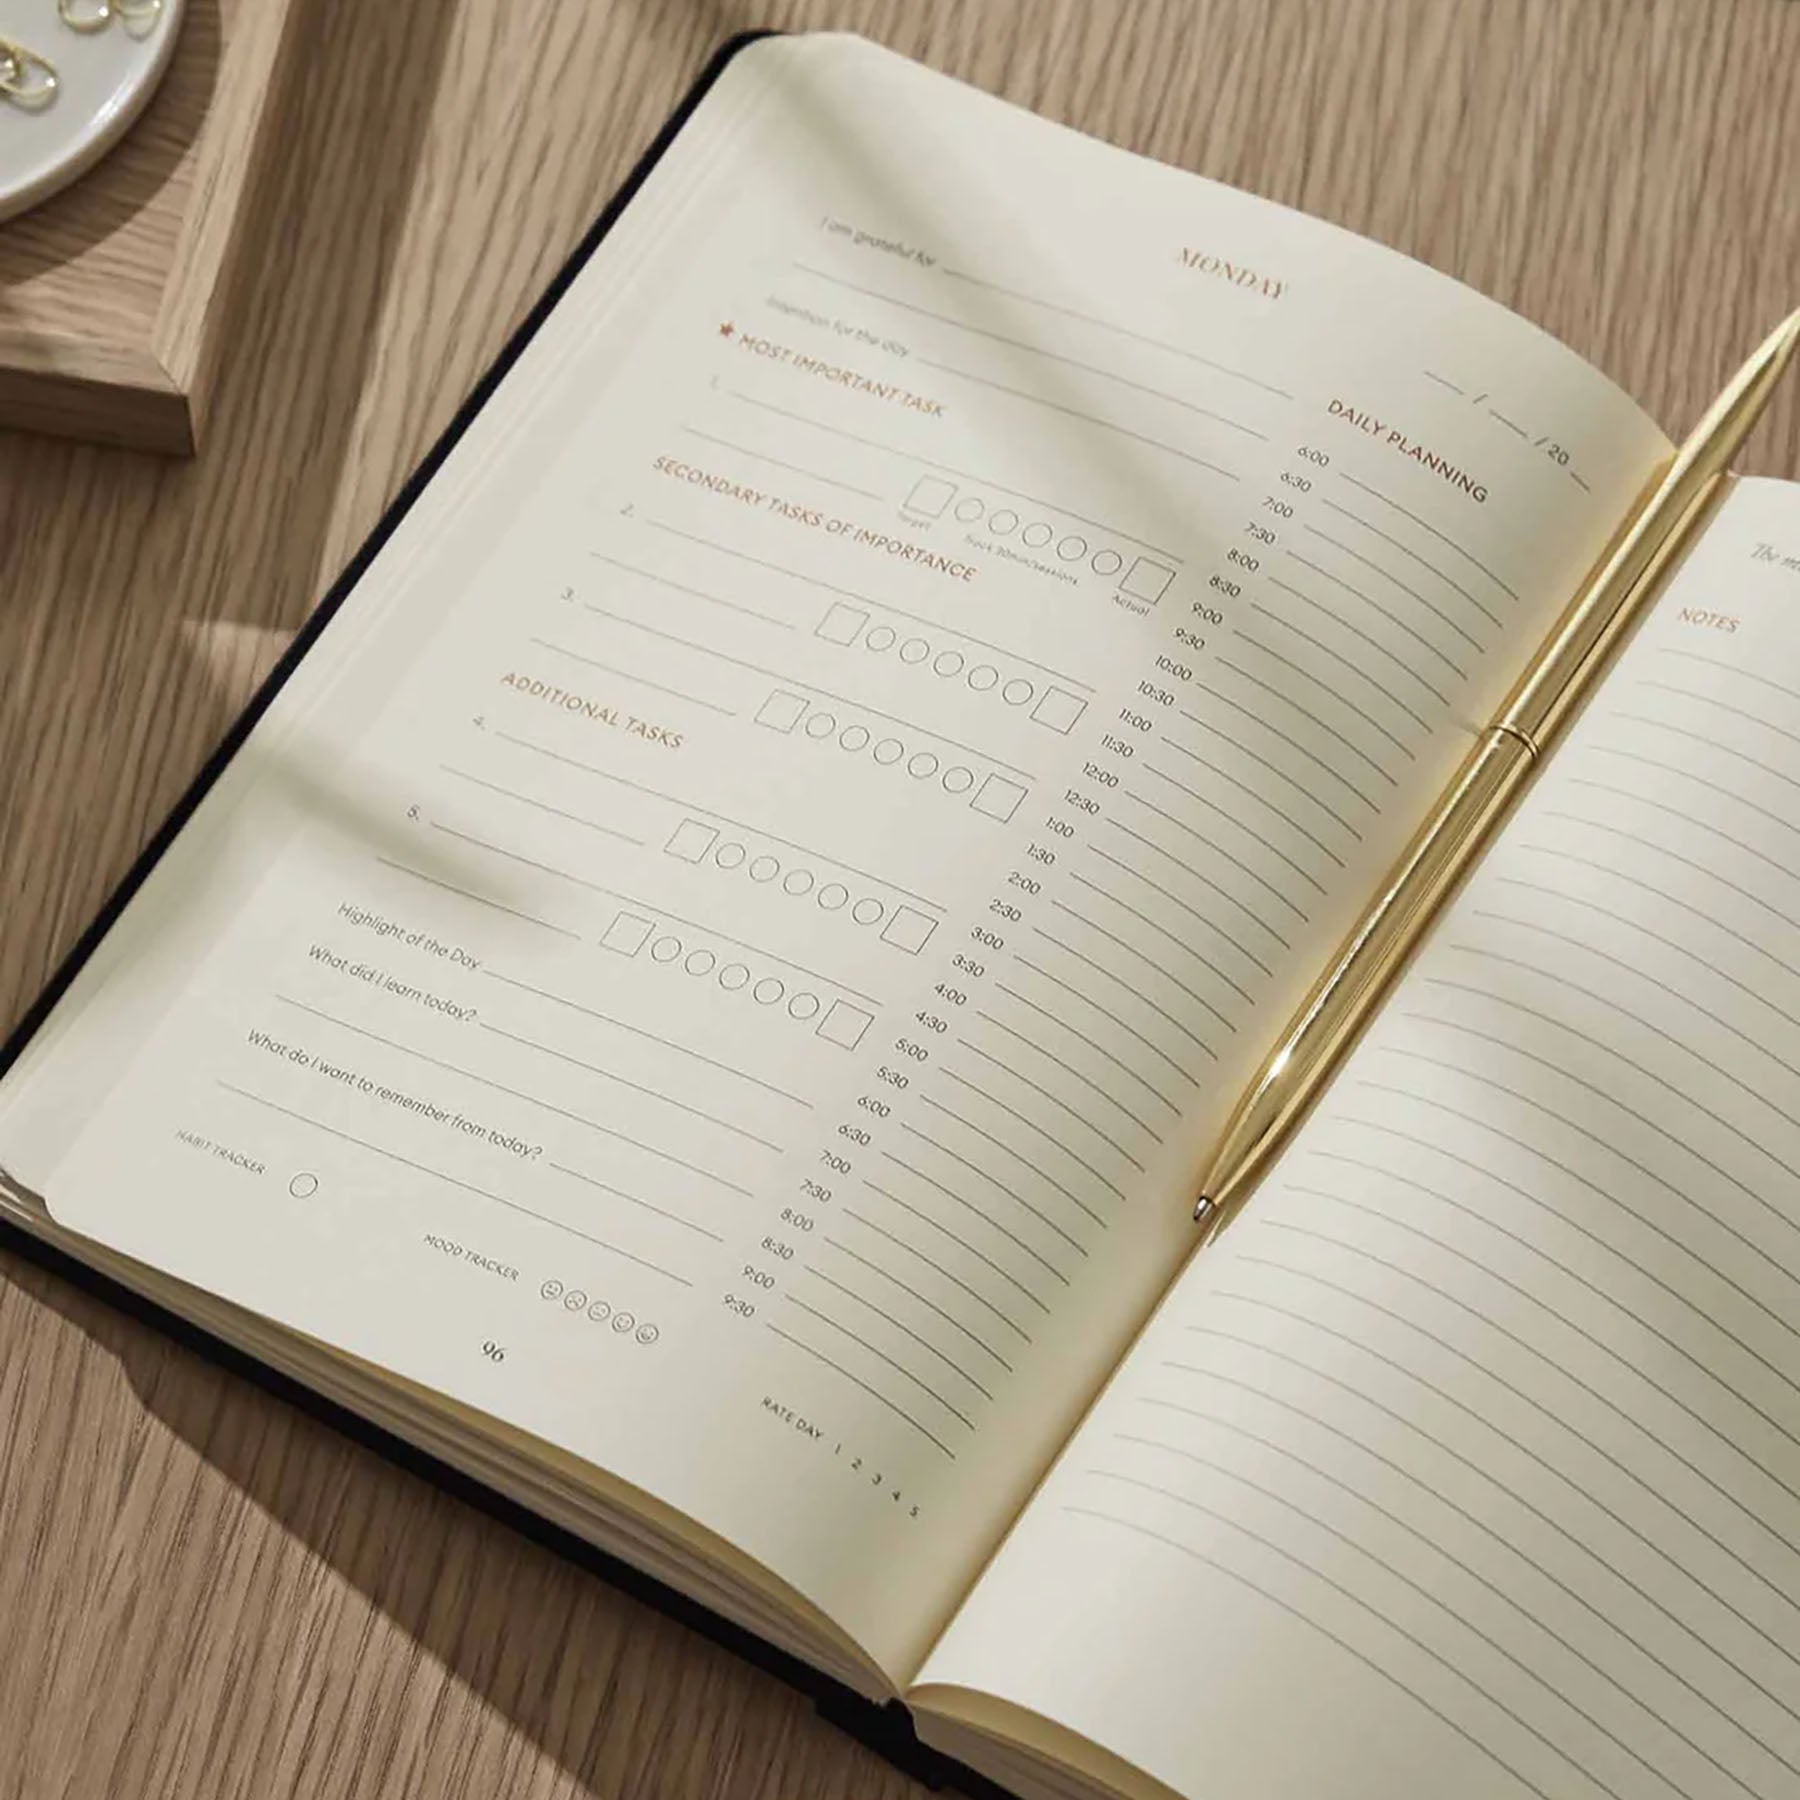 MONDAY
I am grateful for
Intention for the day
★ MOST IMPORTANT TASK
1.
Target
Track 30min/sessions
Actual
SECONDARY TASKS OF IMPORTANCE
2.
3.
ADDITIONAL TASKS
4.
5.
Highlight of the Day
What did I learn today?
What do I want to remember from today?
HABIT TRACKER
MOOD TRACKER
96
/ / 20
DAILY PLANNING
6:00
6:30
7:00
7:30
8:00
8:30
9:00
9:30
10:00
10:30
11:00
11:30
12:00
12:30
1:00
1:30
2:00
2:30
3:00
3:30
4:00
4:30
5:00
5:30
6:00
6:30
7:00
7:30
8:00
8:30
9:00
9:30
RATE DAY 1 2 3 4 5
The
NOTES